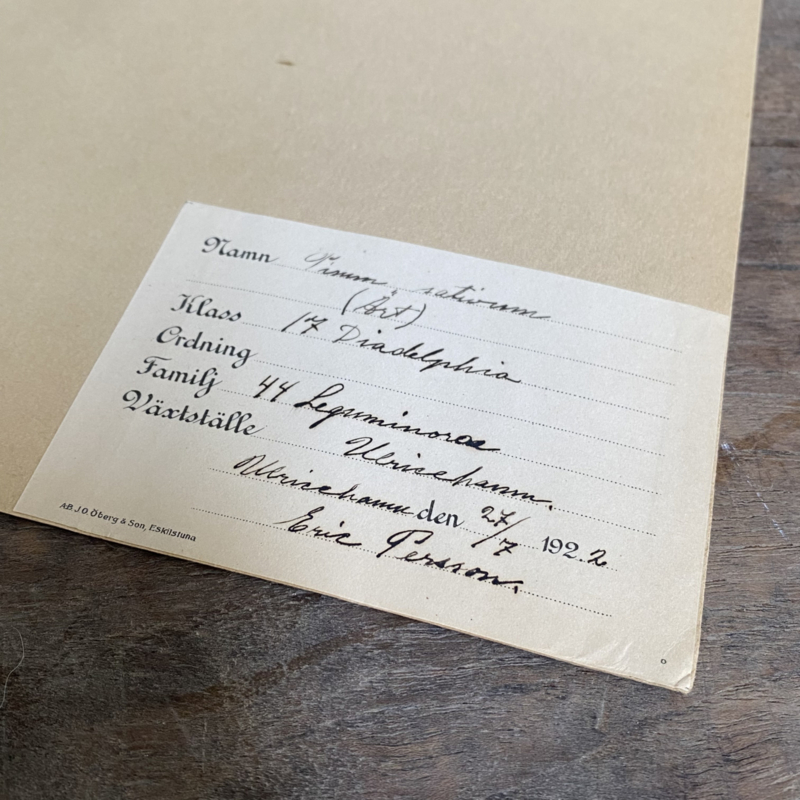 Namn Pisum. sativum
(Ärt)
Klass 17 Diadelphia
Ordning
Familj 44 Leguminosae
Växtställe Ulricehamn.
Ulricehamn den 27/7 1922
Eric Persson.
AB. J.O. Öberg & Son, Eskilstuna